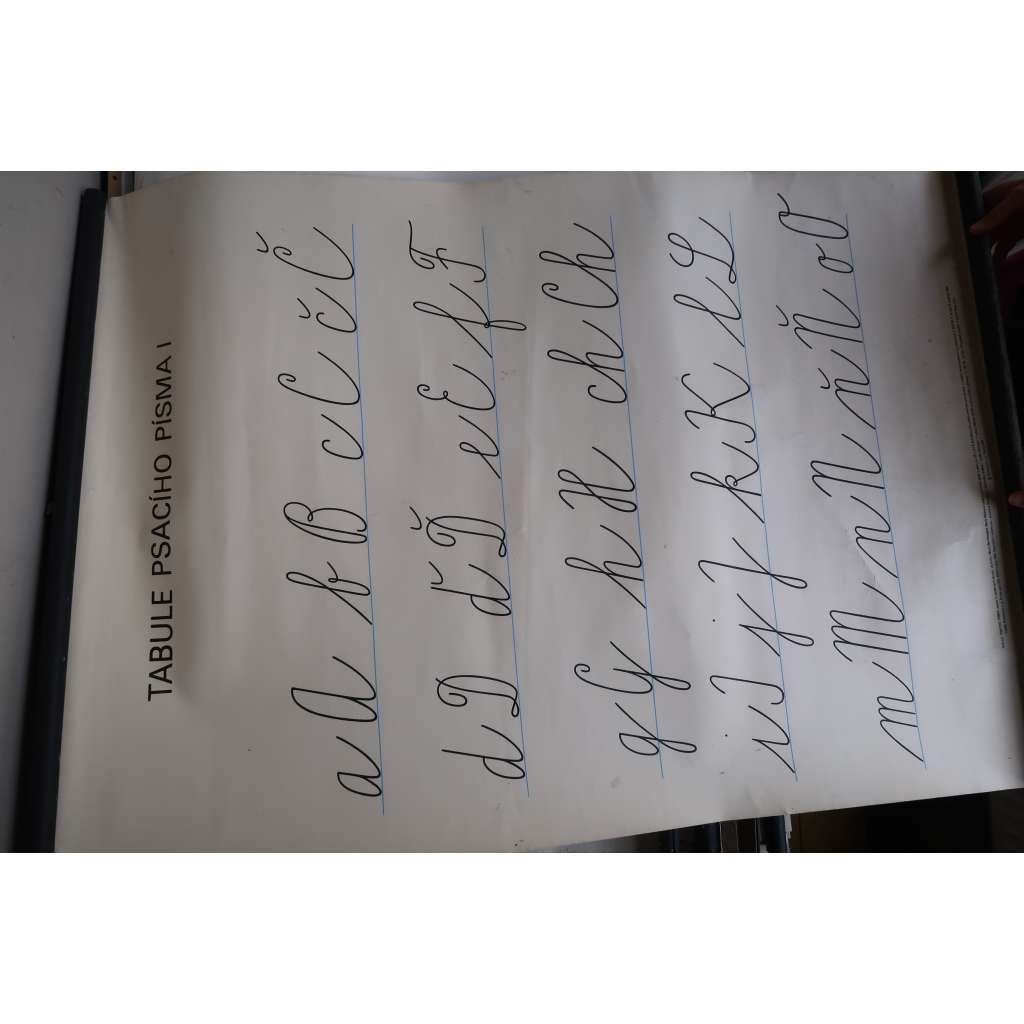 TABULE PSACÍHO PÍSMA I
a A b B c C č Č
d D ď Ď e E f F
g G h H ch Ch
i I j J k K l L
m M n N ň Ň o O